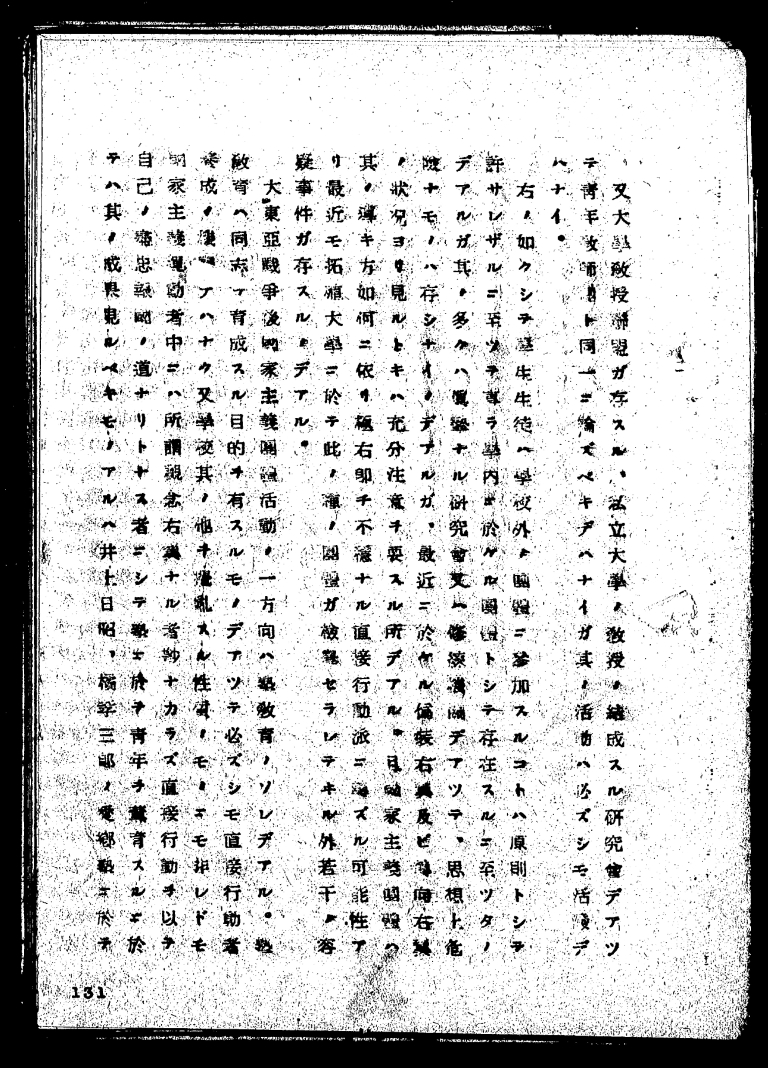 又大學敎授聯盟ガ存スル、私立大學ノ敎授ノ結成スル硏究會デアツ
テ靑年敎師團ト同一ニ論ズベキデハナイガ其ノ活動ハ必ズシモ活潑デ
ハナイ。
右ノ如クシテ學生生徒ハ學校外ノ團體ニ參加スルコトハ原則トシテ
許サレザルニ至ツテ專ラ學內ニ於ケル團體トシテ存在スルニ至ツタノ
デアルガ其ノ多クハ眞摯ナル硏究會又ハ修養團デアツテ、思想上危
險ナモノハ存シナイノデアルガ、最近ニ於ケル偏裝右翼及ビ傾向右翼
ノ狀況ヨリ見ルトキハ充分注意ヲ要スル所デアル。且國家主義團體ハ
其ノ導キ方如何ニ依リ極右卽チ不穩ナル直接行動派ニ轉ズル可能性ア
リ最近モ拓殖大學ニ於テ此ノ種ノ團體ガ檢擧セラレテヰル外若干ノ容
疑事件ガ存スルノデアル。
大東亞戰爭後國家主義團體活動ノ一方向ハ塾敎育ノソレデアル。塾
敎育ハ同志ヲ育成スル目的ヲ有スルモノデアツテ必ズシモ直接行動者
養成ノ機關デハナク又學校其ノ他ヲ攪亂スル性質ノモノニモ非レドモ
國家主義運動者中ニハ所謂觀念右翼ナル者尠ナカラズ直接行動ヲ以テ
自己ノ盡忠報國ノ道ナリトナス者ニシテ塾ニ於テ靑年ヲ薰育スルニ於
テハ其ノ成果見ルベキモノアルハ井上日昭、橘孝三郎ノ愛鄕塾ニ於テ
131